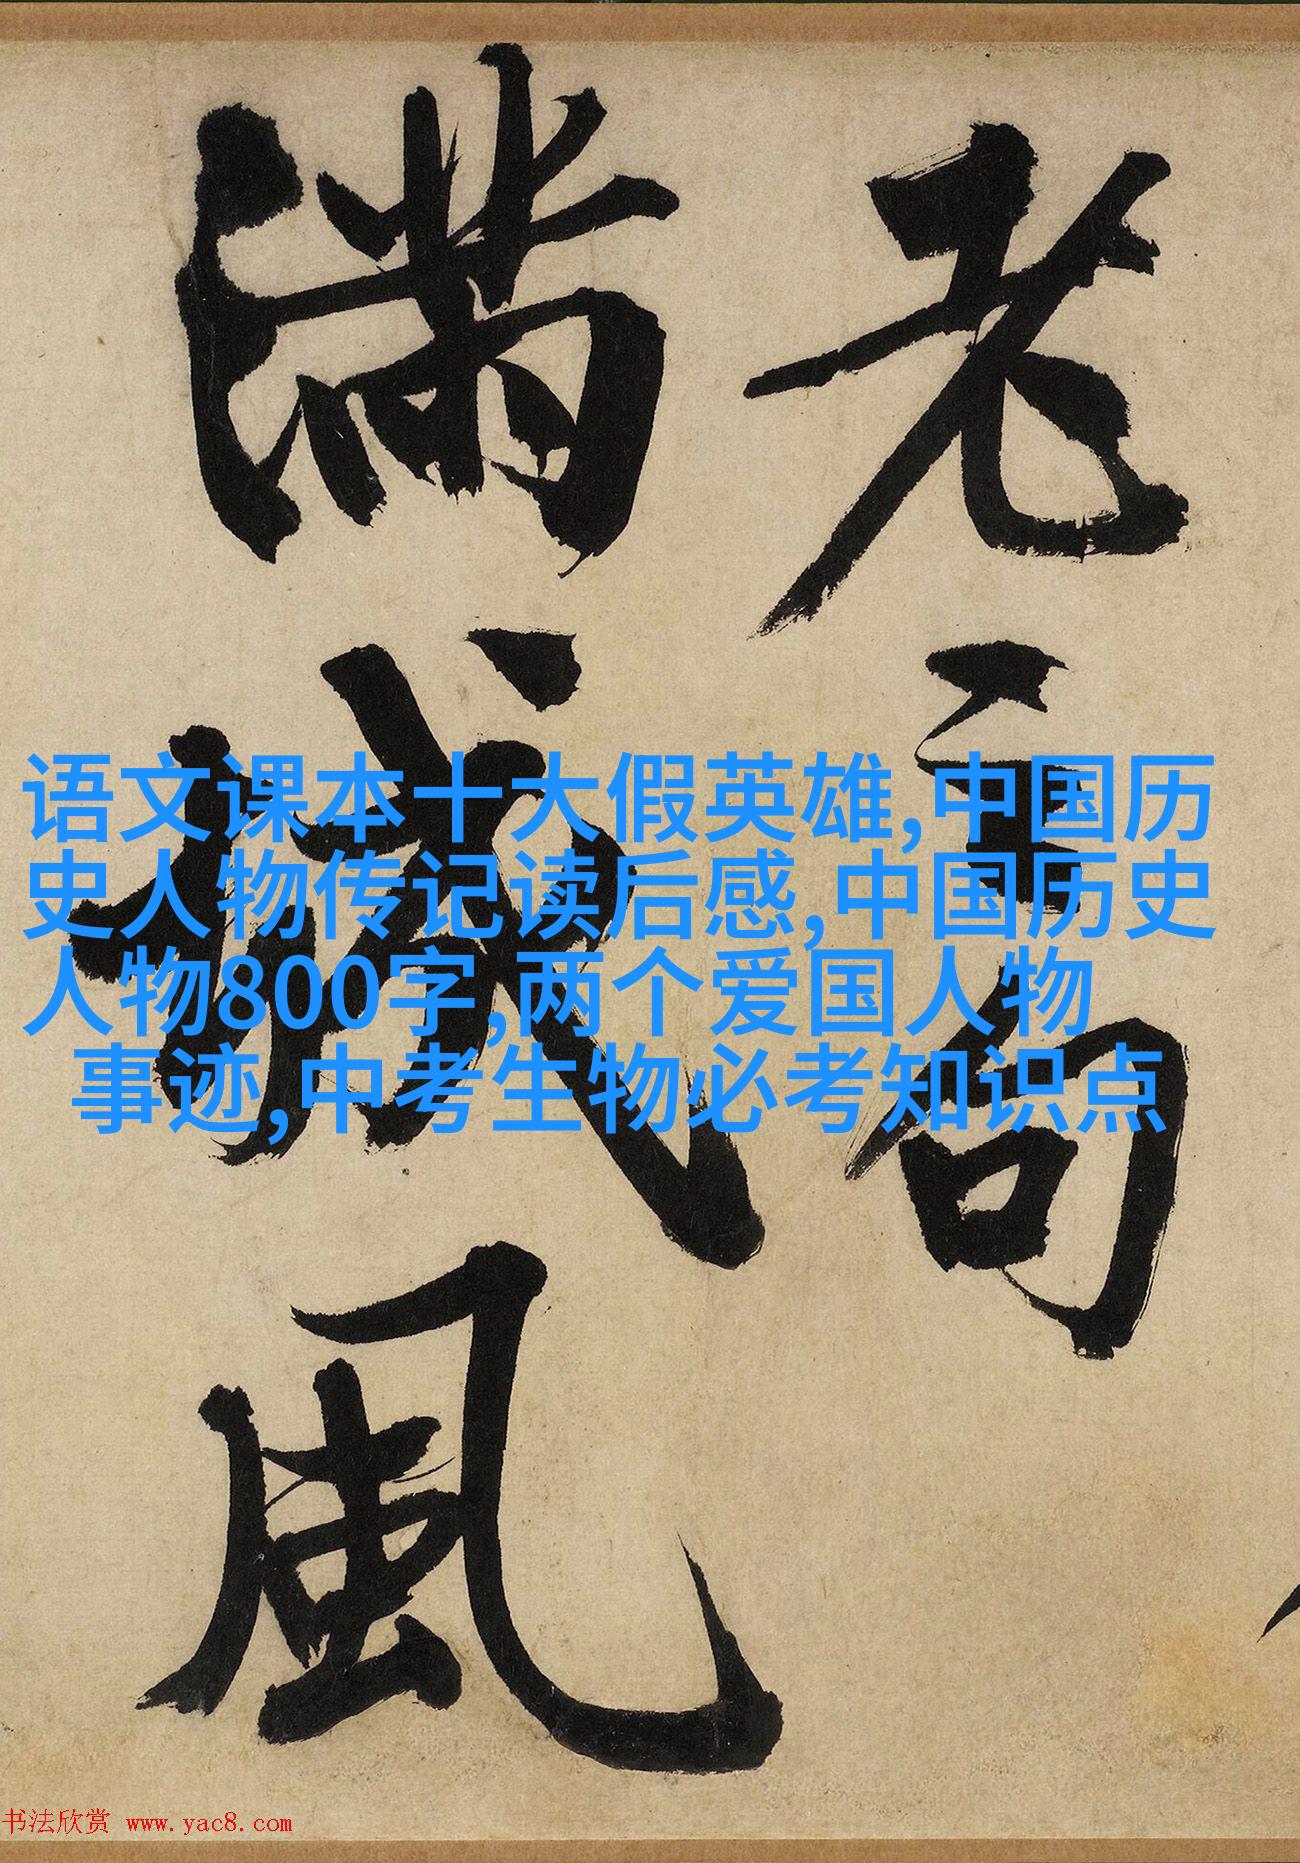 老句
滿城風
语文课本十大假英雄,中国历
史人物传记读后感,中国历史
人物800字,两个爱国人物
事迹,中考生物必考知识点
书法欣赏 www.yac8.com